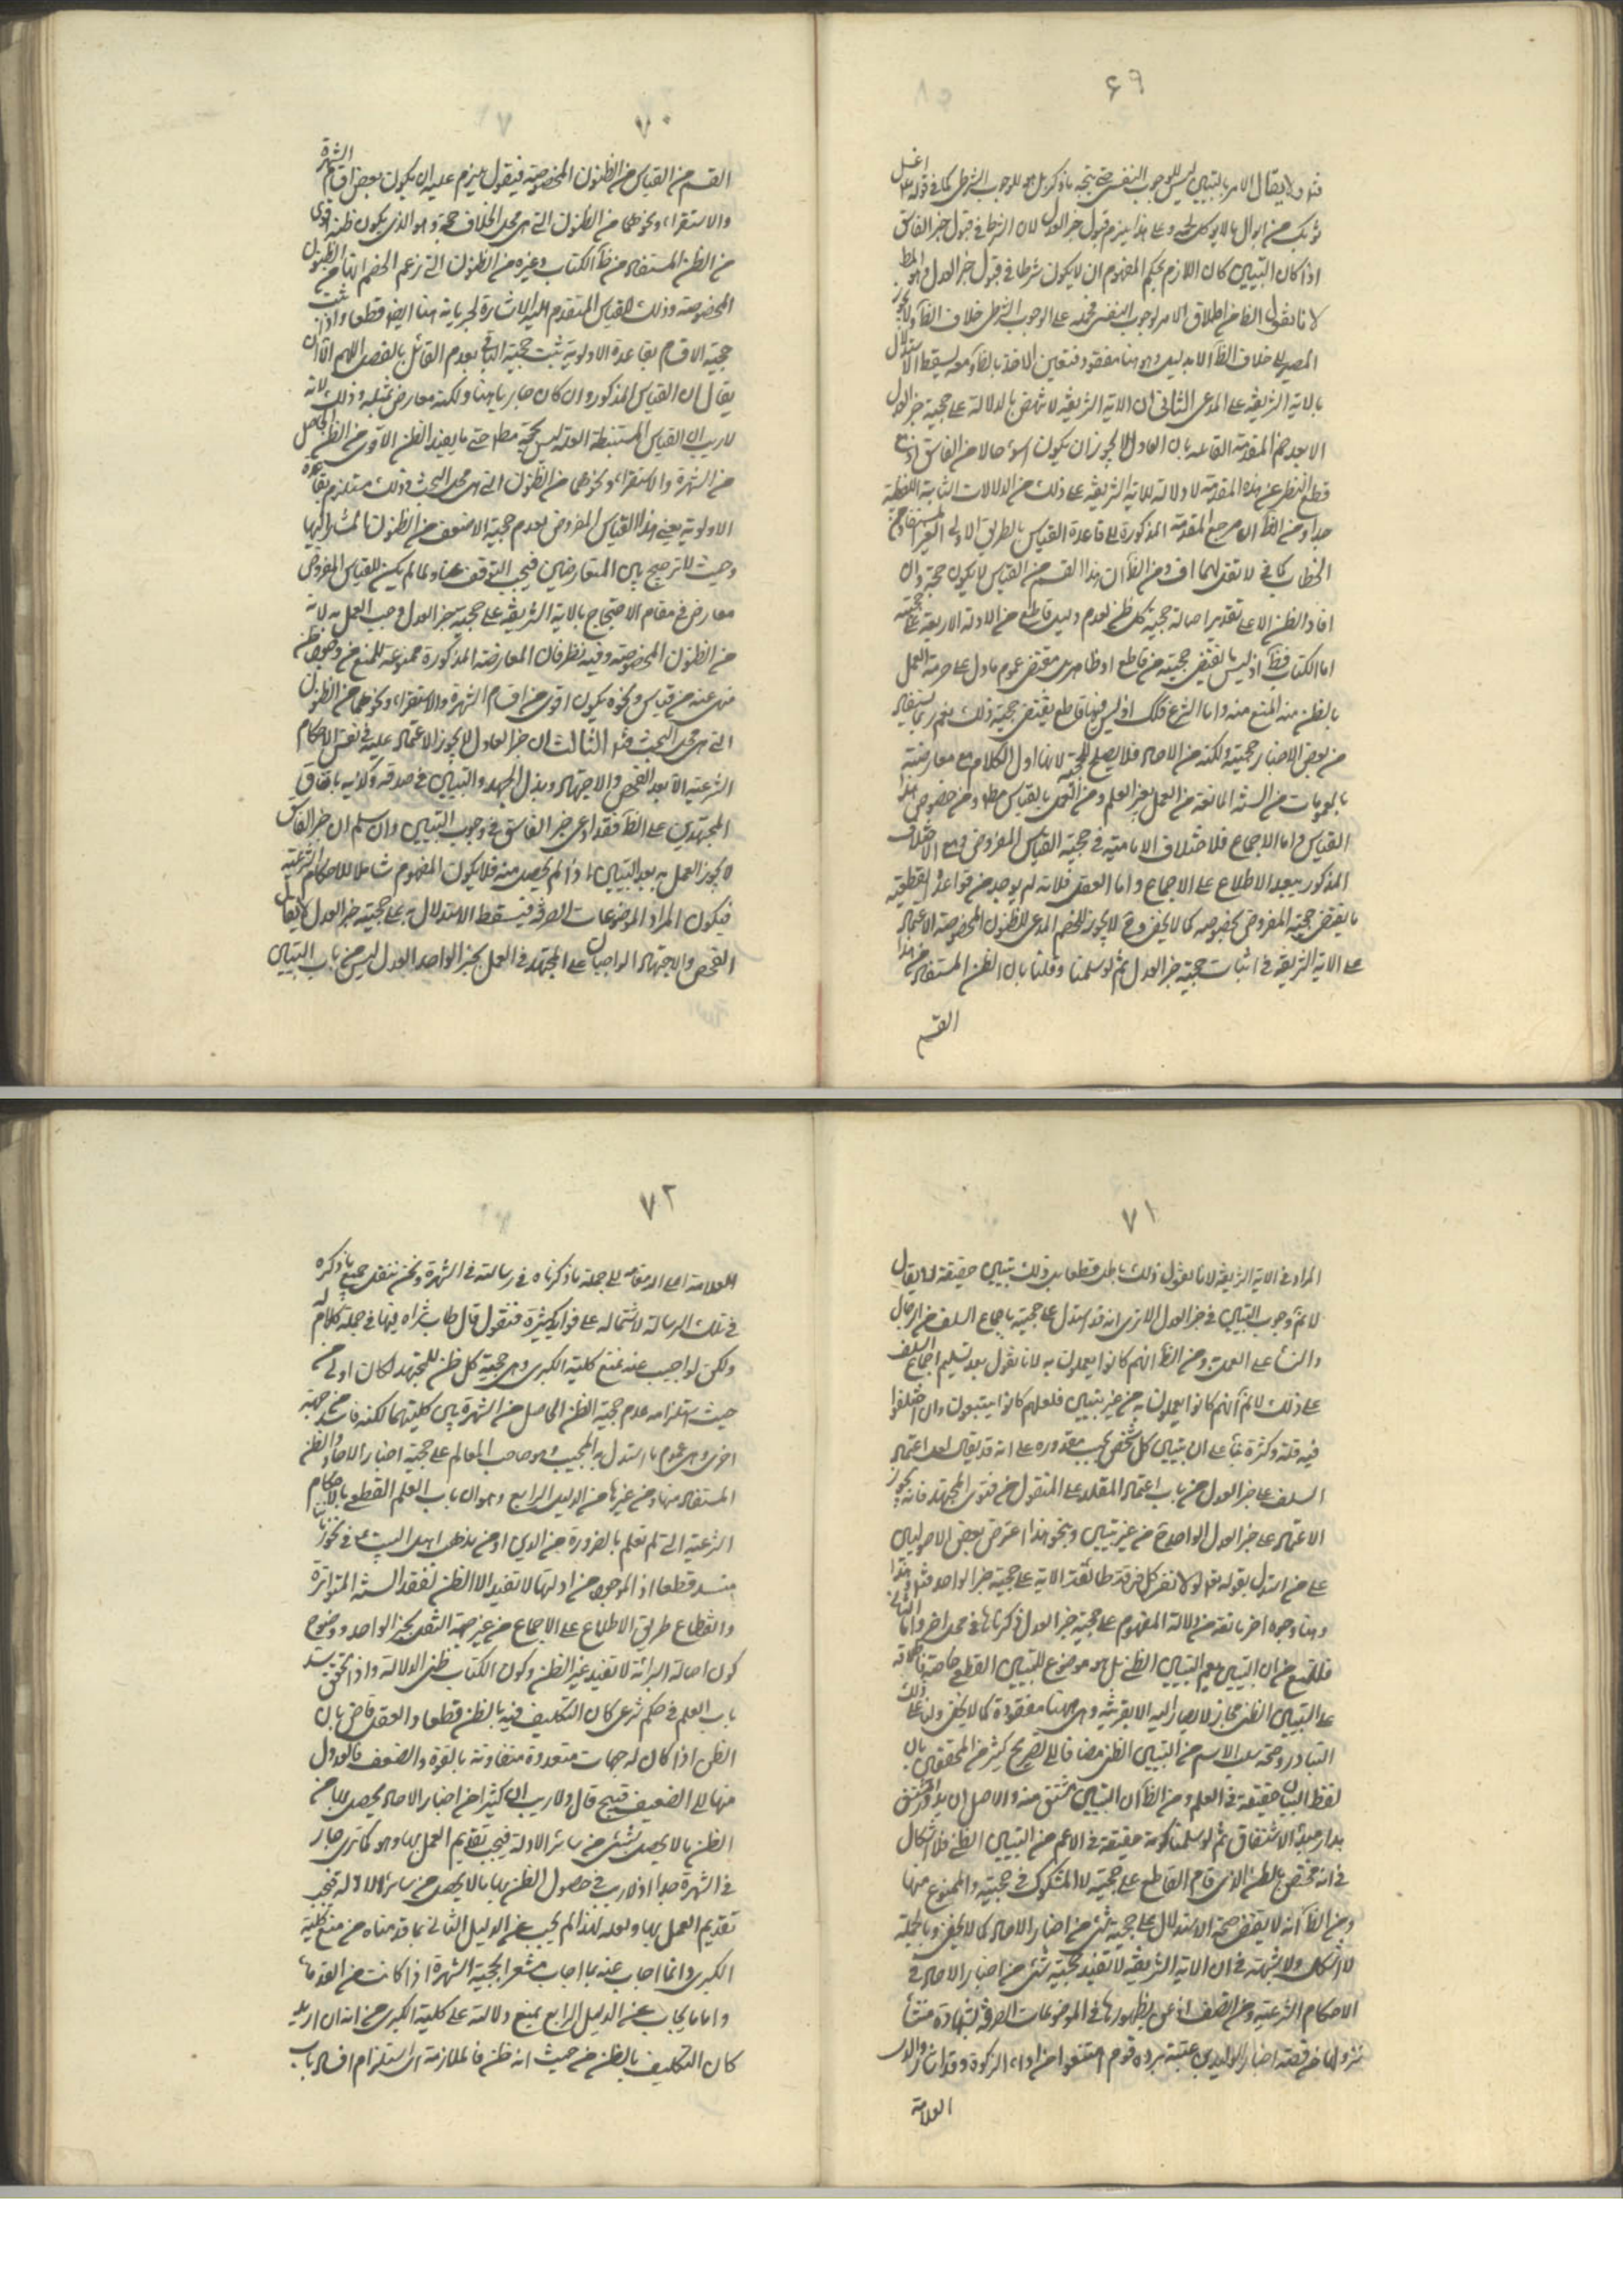 ۶۹
فتد ولا يقال الامر بالتبين ليس للوجوب النفسى حتى يتجه ما ذكر بل هو للوجوب الشرطى كما فى قوله اغسل
ثوبك من ابوال ما لا يوكل لحمه وعلى هذا يلزم قبول خبر العدل لان الشرط فى قبول خبر الفاسق
اذا كان التبين كان اللازم بحكم المفهوم ان لا يكون شرطا فى قبول خبر العدل وهو المط
لانا نقول الظاهر من اطلاق الامر الوجوب النفسى فحمله على الوجوب الشرطى خلاف الظ ولا يجوز
المصير الى خلاف الظ الا بدليل وهو هنا مفقود فتعين الاخذ بالظ ومعه يسقط الاستدلال
بالاية الشريفة على المدعى الثانى ان الاية الشريفة لا تنهض بالدلالة على حجية خبر العدل
الا بعد ضم المقدمة القائلة بان العادل لا يجوز ان يكون اسوء حالا من الفاسق اذ مع
قطع النظر عن هذه المقدمة لا دلالة للاية الشريفة على ذلك من الدلالات الثابتة اللفظية
جدا ومن الظ ان مرجع المقدمة المذكورة الى قاعدة القياس بالطريق الاولى الغير المستفاد من
الخطاب كما فى لا تقل لهما اف ومن الظ ان هذا القسم من القياس لا يكون حجة وان
افاد الظن الا على تقدير اصالة حجية كل ظن لعدم دليل قاطع من الادلة الاربعة على حجيته
اما الكتاب فظ اذ ليس ما يقتضى حجيته من قاطع او ظاهر بل مقتضى عموم ما دل على حرمة العمل
بالظن منه المنع منه واما الشرع فكك اذ ليس فيها قاطع يقتضى حجية ذلك نعم ربما يستفاد
من بعض الاخبار حجيته ولكنه من الاحاد فلا يصلح للحجية لانها اول الكلام مع معارضته
بالعمومات من السنة المانعة من العمل بغير العلم ومن العمل بالقياس مط ومن خصوص هذا
القياس واما الاجماع فلاختلاف الامامية فى حجية القياس المفروض ومع الاختلاف
المذكور يبعد الاطلاع على الاجماع واما العقل فلانه لم يوجد من قواعده القطعية
ما يقتضى حجية المفروض بخصوصه كما لا يخفى وح لا يجوز للخصم المدعى للظنون المخصوصة الاعتماد
على الاية الشريفة فى اثبات حجية خبر العدل ثم لو سلمنا وقلنا بان الظن المستفاد من هذا
القسم
۷۰
القسم من القياس من الظنون المخصوصة فنقول يلزم عليه ان يكون بعض اقسام الشهرة
والاستقراء ونحوهما من الظنون التى هى محل الخلاف حجة وهو الذى يكون ظنه اقوى
من الظن المستفاد من ظ الكتاب وغيره من الظنون التى زعم الخصم انها من الظنون
المخصوصة وذلك للقياس المتقدم اليه الاشارة لجريانه هنا ايضا قطعا واذا ثبت
حجية الاقسام بقاعدة الاولوية ثبت حجية الباقى بعدم القائل بالفصل اللهم الا ان
يقال ان القياس المذكور وان كان جاريا هنا ولكنه معارض بمثله وذلك لانه
لا ريب ان القياس المستنبطة العلة ليس بحجة مط حتى ما يفيد الظن الاقوى من الظن الحاصل
من الشهرة والاستقراء ونحوهما من الظنون التى هى محل البحث وذلك مستلزم بقاعدة
الاولوية يعنى هذا القياس المفروض لعدم حجية الاضعف من الظنون المشار اليها
وحيث لا ترجيح بين المتعارضين فيجب التوقف هنا ولما لم يكن للقياس المفروض
معارض فى مقام الاحتجاج بالاية الشريفة على حجية خبر العدل وجب العمل به لانه
من الظنون المخصوصة وفيه نظر فان المعارضة المذكورة ممنوعة للمنع من وجود ظن
منهى عنه من قياس ونحوه يكون اقوى من اقسام الشهرة والاستقراء ونحوهما من الظنون
التى هى محل البحث فتد الثالث ان خبر العادل لا يجوز الاعتماد عليه فى نفس الاحكام
الشرعية الا بعد الفحص والاجتهاد وبذل الجهد والتبين فى صدقه وكذبه باتفاق
المجتهدين على الظ فقد ادعى خبر الفاسق فى وجوب التبين وان سلم ان خبر الفاسق
لا يجوز العمل به بعد التبين اذا لم يحصل منه فلا يكون المفهوم شاملا للاحكام الشرعية
فيكون المراد الموضوعات الصرفة فيسقط الاستدلال به على حجية خبر العدل لا يقال
الفحص والاجتهاد الواجبان على المجتهد فى العمل بخبر الواحد العدل ليس من باب التبين
۷۱
المراد فى الاية الشريفة لانا نقول ذلك باطل قطعا بل ذلك تبين حقيقة لا يقال
لا نم وجوب التبين فى خبر العدل الا ترى انه قد استدل على حجيته باجماع السلف من الرجال
والنساء على العمل به ومن الظ انهم كانوا يعملون به لانا نقول بعد تسليم اجماع السلف
على ذلك لا نم انهم كانوا يعملون به من غير تبين فلعلهم كانوا يتتبعون وان اختلفوا
فيه قلة وكثرة بناء على ان تبين كل شخص بحسب مقدوره على انه قد يقال لعل اعتماد
السلف على خبر العدل من باب اعتماد المقلد على المنقول من فتوى المجتهد فانه يجوز
الاعتماد على خبر العدل الواحد فيه من غير تبين وبنحو هذا اعترض بعض الاصوليين
على من استدل بقوله تع لولا نفر من كل فرقة طائفة الاية على حجية خبر الواحد فتد هذا
وهنا وجوه اخر مانعة من دلالة المفهوم على حجية خبر العدل ذكرناها فى محل اخر واما الثانى
فللمنع من ان التبين يعم التبين الظنى بل هو موضوع للتبين القطعى خاصة فاطلاقه
على التبين الظنى مجاز لا يصار اليه الا بقرينة وهى ههنا مفقودة كما لا يخفى ولنا على ذلك
التبادر وصحة سلب الاسم من التبين الظنى مضافا الى تصريح كثير من المحققين بان
لفظ البيان حقيقة فى العلم ومن الظ ان التبين مشتق منه والاصل ان يدور المشتق
مدار مبدء الاشتقاق ثم لو سلمنا كونه حقيقة فى الاعم من التبين الظنى فلا اشكال
فى انه مختص بالظن الذى قام القاطع على حجيته لا المشكوك فى حجيته والممنوع منها
ومن الظ انه لا يقتضى صحة الاستدلال على حجية شئ من اخبار الاحاد كما لا يخفى وبالجملة
لا اشكال ولا شبهة فى ان الاية الشريفة لا تفيد حجية شئ من اخبار الاحاد فى
الاحكام الشرعية ومن انصف اذعن بظهورها فى الموضوعات الصرفة بشهادة منشأ
نزولها من قصة اخبار الوليد بن عتبة بردة قوم امتنعوا من اداء الزكوة وقد اشار والدى
العلامة
۷۲
العلامة اعلى الله مقامه الى جملة ما ذكرناه فى رسالته فى الشهرة ونحن ننقل جميع ما ذكره
فى تلك الرسالة لاشتماله على فوايد كثيرة فنقول قال طاب ثراه فيها فى جملة كلام له
ولكن لو اجيب عنه بمنع كلية الكبرى وهى حجية كل ظن للمجتهد لكان اولى من
حيث استلزامه عدم حجية الظن الحاصل من الشهرة بين كليتهما لكنه فاسد من جهة
اخرى وهى عموم ما استدل به المجيب وهو صاحب المعالم على حجية اخبار الاحاد والظن
المستفاد منها ومن غيرها من الدليل الرابع وهو ان باب العلم القطعى بالاحكام
الشرعية التى لم تعلم بالضرورة من الدين او من مذهب اهل البيت ع فى نحو زماننا
منسد قطعا اذ الموجود من ادلتها لا تفيد الا الظن لفقد السنة المتواترة
وانقطاع طريق الاطلاع على الاجماع من غير جهة النقل بخبر الواحد ووضوح
كون اصالة البرائة لا تفيد غير الظن وكون الكتاب ظنى الدلالة واذا تحقق انسداد
باب العلم فى حكم شرعى كان التكليف فيه بالظن قطعا والعقل قاض بان
الظن اذا كان له جهات متعددة متفاوتة بالقوة والضعف فالعدول
منها الى الضعيف قبيح قال ولا ريب ان كثيرا من اخبار الاحاد يحصل بها من
الظن ما لا يحصل بشئ من سائر الادلة فيجب تقديم العمل بها وهو كما ترى جار
فى الشهرة جدا اذ لا ريب فى حصول الظن بها ما لا يحصل من سائر الادلة فيجب
تقديم العمل بها ولعله لهذا لم يجيب عن الدليل الثانى بما قدمناه من منع كلية
الكبرى وانما اجاب عنه بما اجاب مشعرا بحجية الشهرة اذا كانت من القدماء
واما ما يجاب عن الدليل الرابع بمنع دلالته على كلية الكبرى من انه ان اريد
كان التكليف بالظن من حيث انه ظن فالملازمة اى استلزام انسداد باب